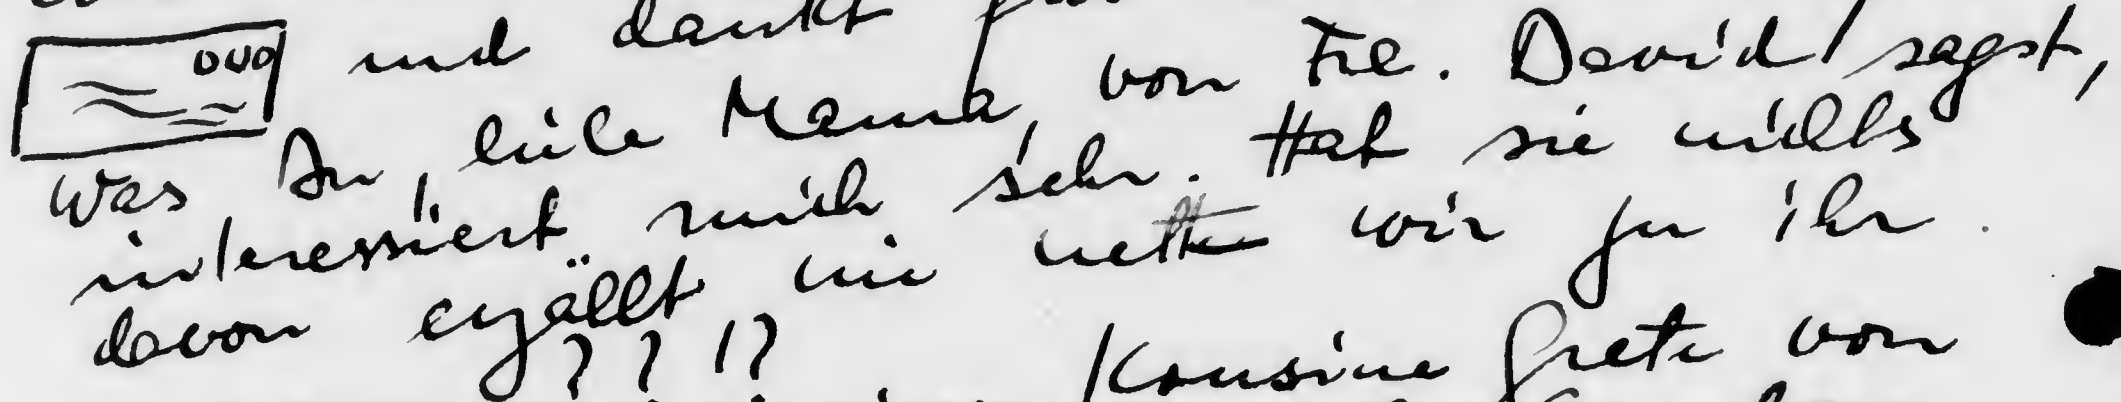 und dankt
was Du, liebe Mama, von Frl. David sagst,
interessiert mich sehr. Hat sie nichts
davon erzählt wie nett wir zu ihr
? ? !?
Kousine Grete von